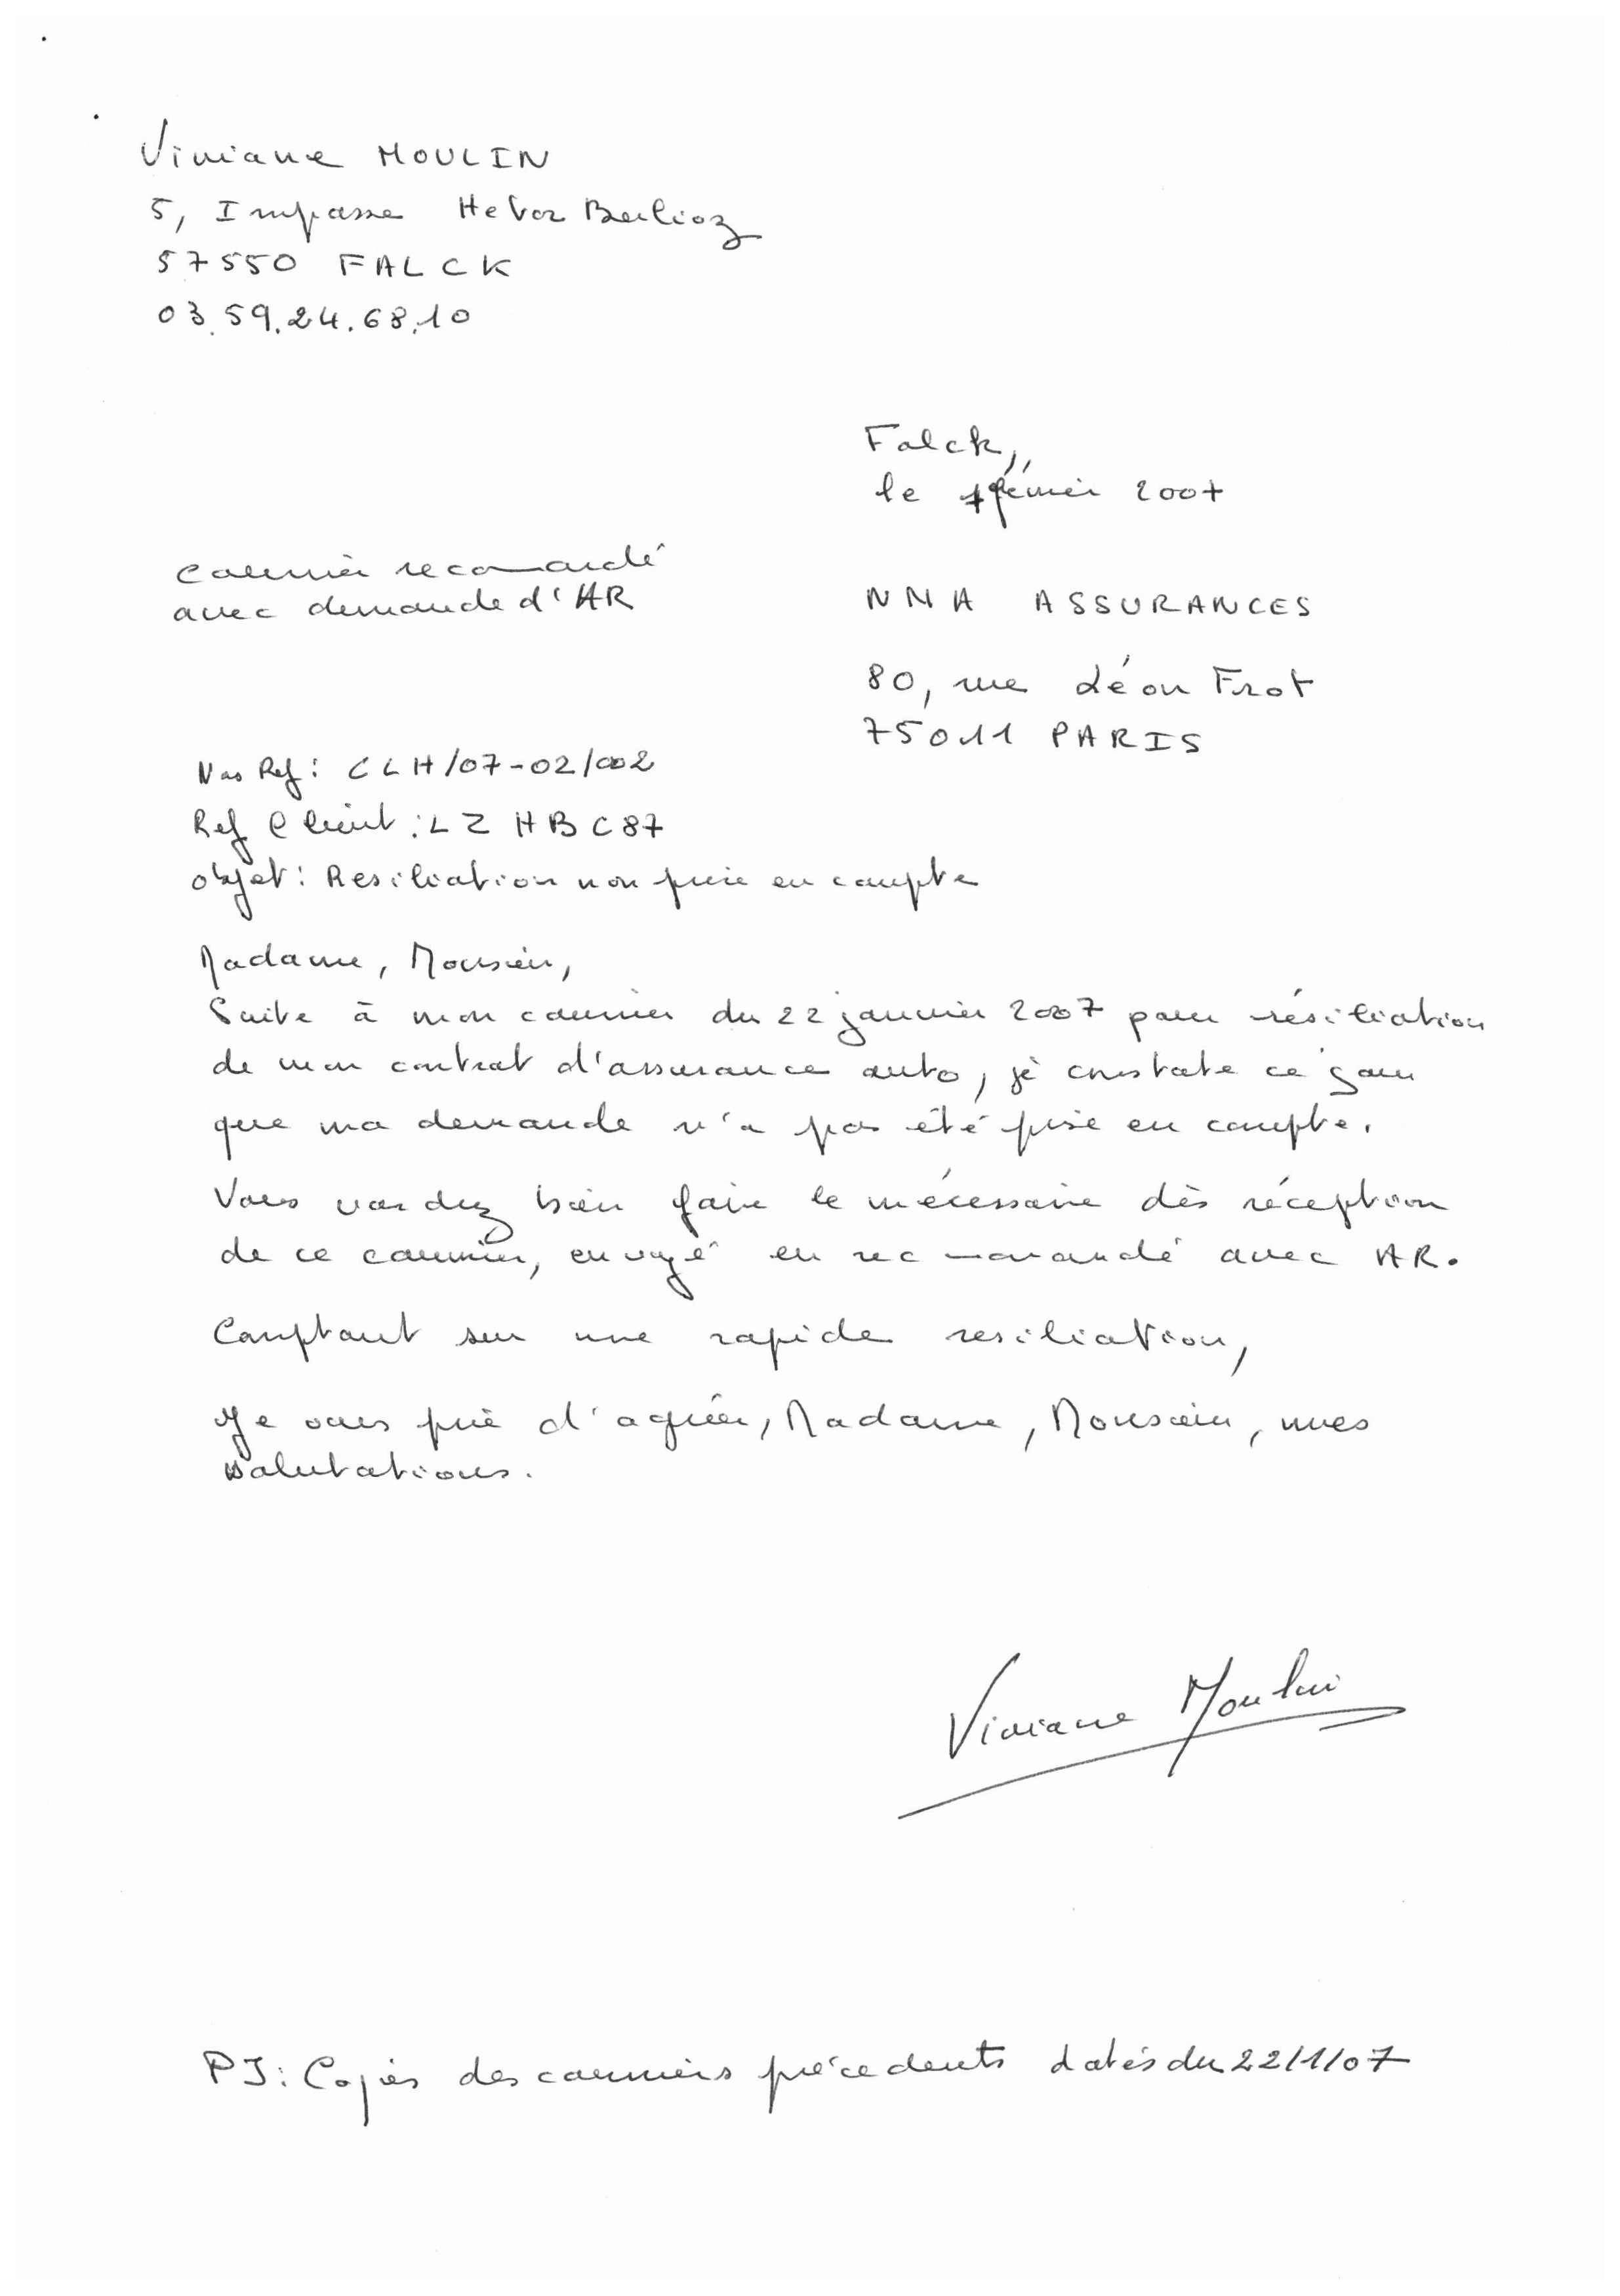 Viviane MOULIN
5, Impasse Hector Berlioz
57550 FALCK
03.59.24.68.10
Falck,
le février 2007
Courrier recommandé
avec demande d'AR
NMA ASSURANCES
80, rue Léon Frot
75011 PARIS
Vos Ref : CLH/07-02/002
Ref Client : LZHBC87
objet : Resiliation non prise en compte
Madame, Monsieur,
Suite à mon courrier du 22 janvier 2007 pour résiliation
de mon contrat d'assurance auto, je constate ce jour
que ma demande n'a pas été prise en compte.
Vous voudrez bien faire le nécessaire dès réception
de ce courrier, envoyé en recommandé avec AR.
Comptant sur une rapide resiliation,
Je vous prie d'agréer, Madame, Monsieur, mes
salutations.
Viviane Moulin
PJ : Copies des courriers précedents datés du 22/1/07